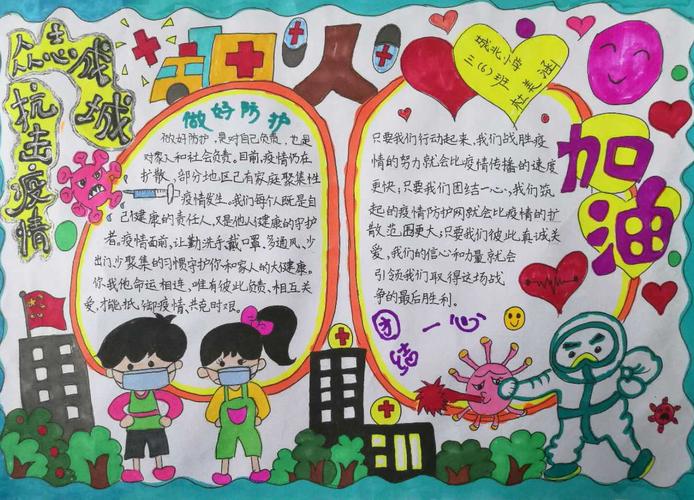 众志成城
抗击疫情
做好防护
做好防护,是对自己负责,也是
对家人和社会负责。目前,疫情仍在
扩散,部分地区已有家庭聚集性
疫情发生。我们每个人既是自
己健康的责任人,又是他人健康的守护
者。疫情面前,让勤洗手、戴口罩、多通风、少
出门、少聚集的习惯守护你和家人的大健康。
你我他命运相连,唯有彼此负责、相互关
爱,才能抵御疫情、共克时艰。
城北小学
三(6)班 杜美涵
只要我们行动起来,我们战胜疫
情的努力就会比疫情传播的速度
更快,只要我们团结一心,我们筑
起的疫情防护网就会比疫情的扩
散范围更大;只要我们彼此真诚关
爱,我们的信心和力量就会
引领我们取得这场战
争的最后胜利。
加油
团结一心